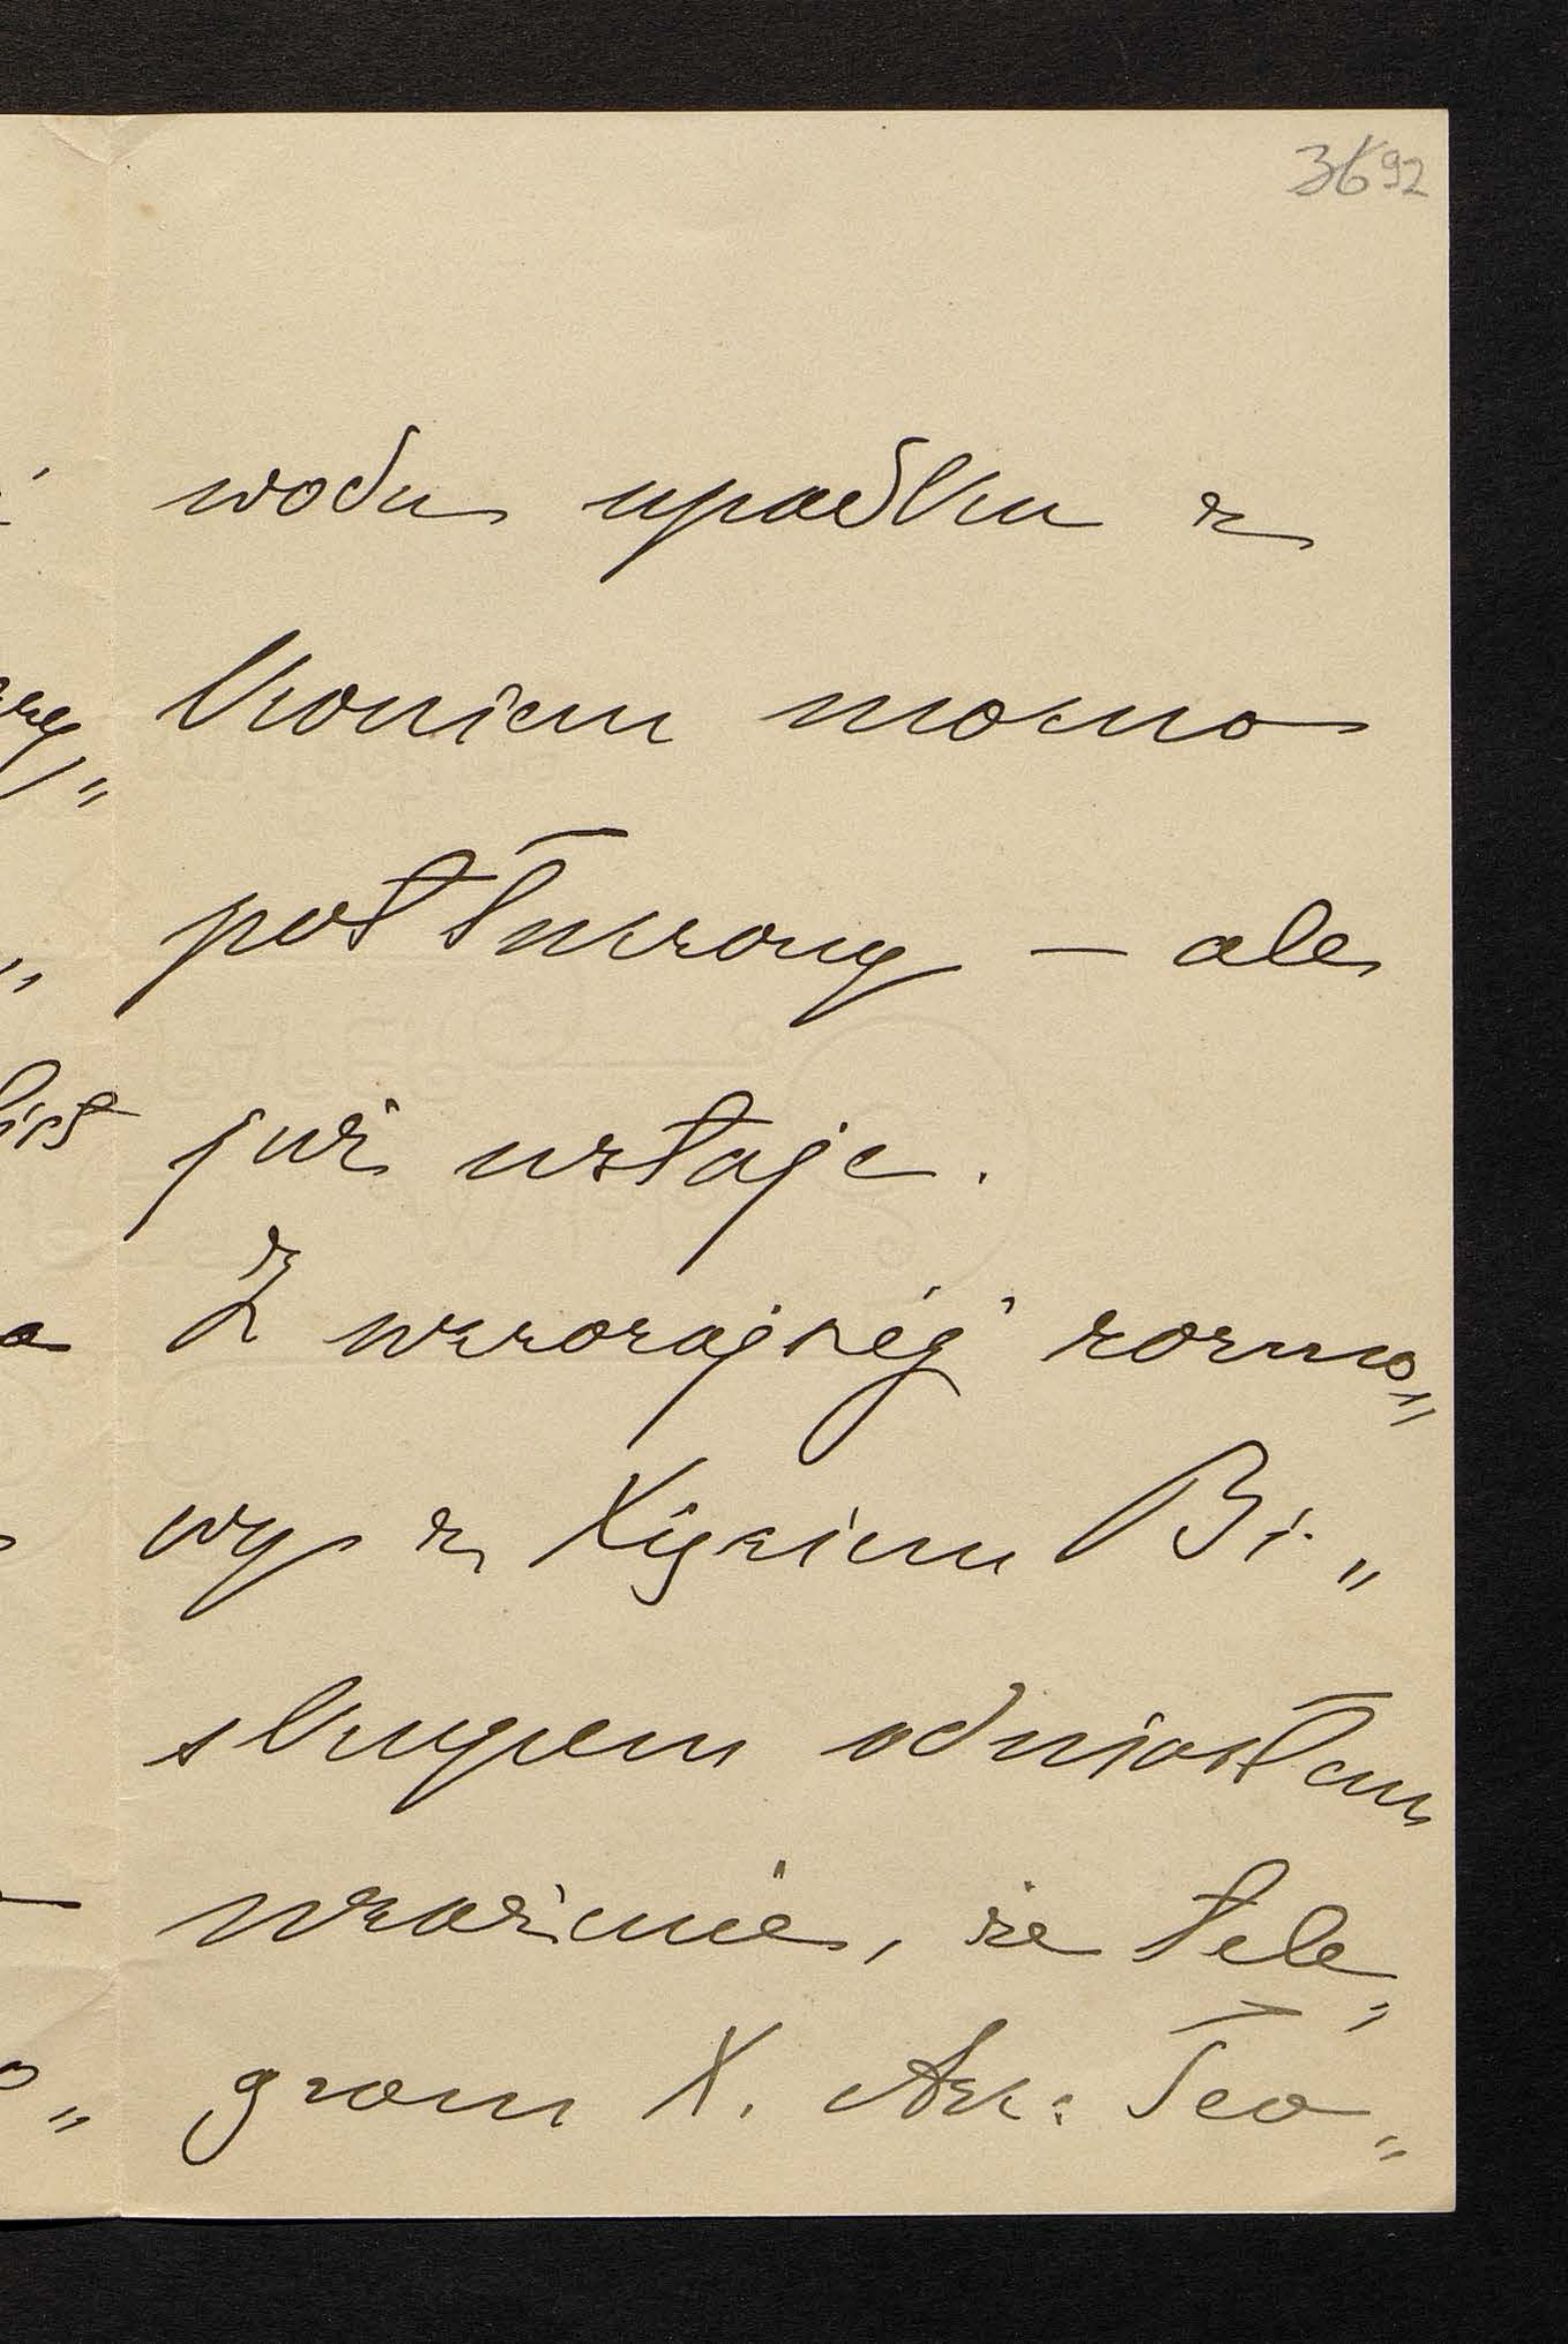 3692
wodu upadku z
koniem mocno
potłuczony — ale
już wstaje.
Z wczorajszéj rozmo„
wy z Xięciem Bi„
skupem odniosłem
wrażenie, że tele„
gram X. Ark: Teo„